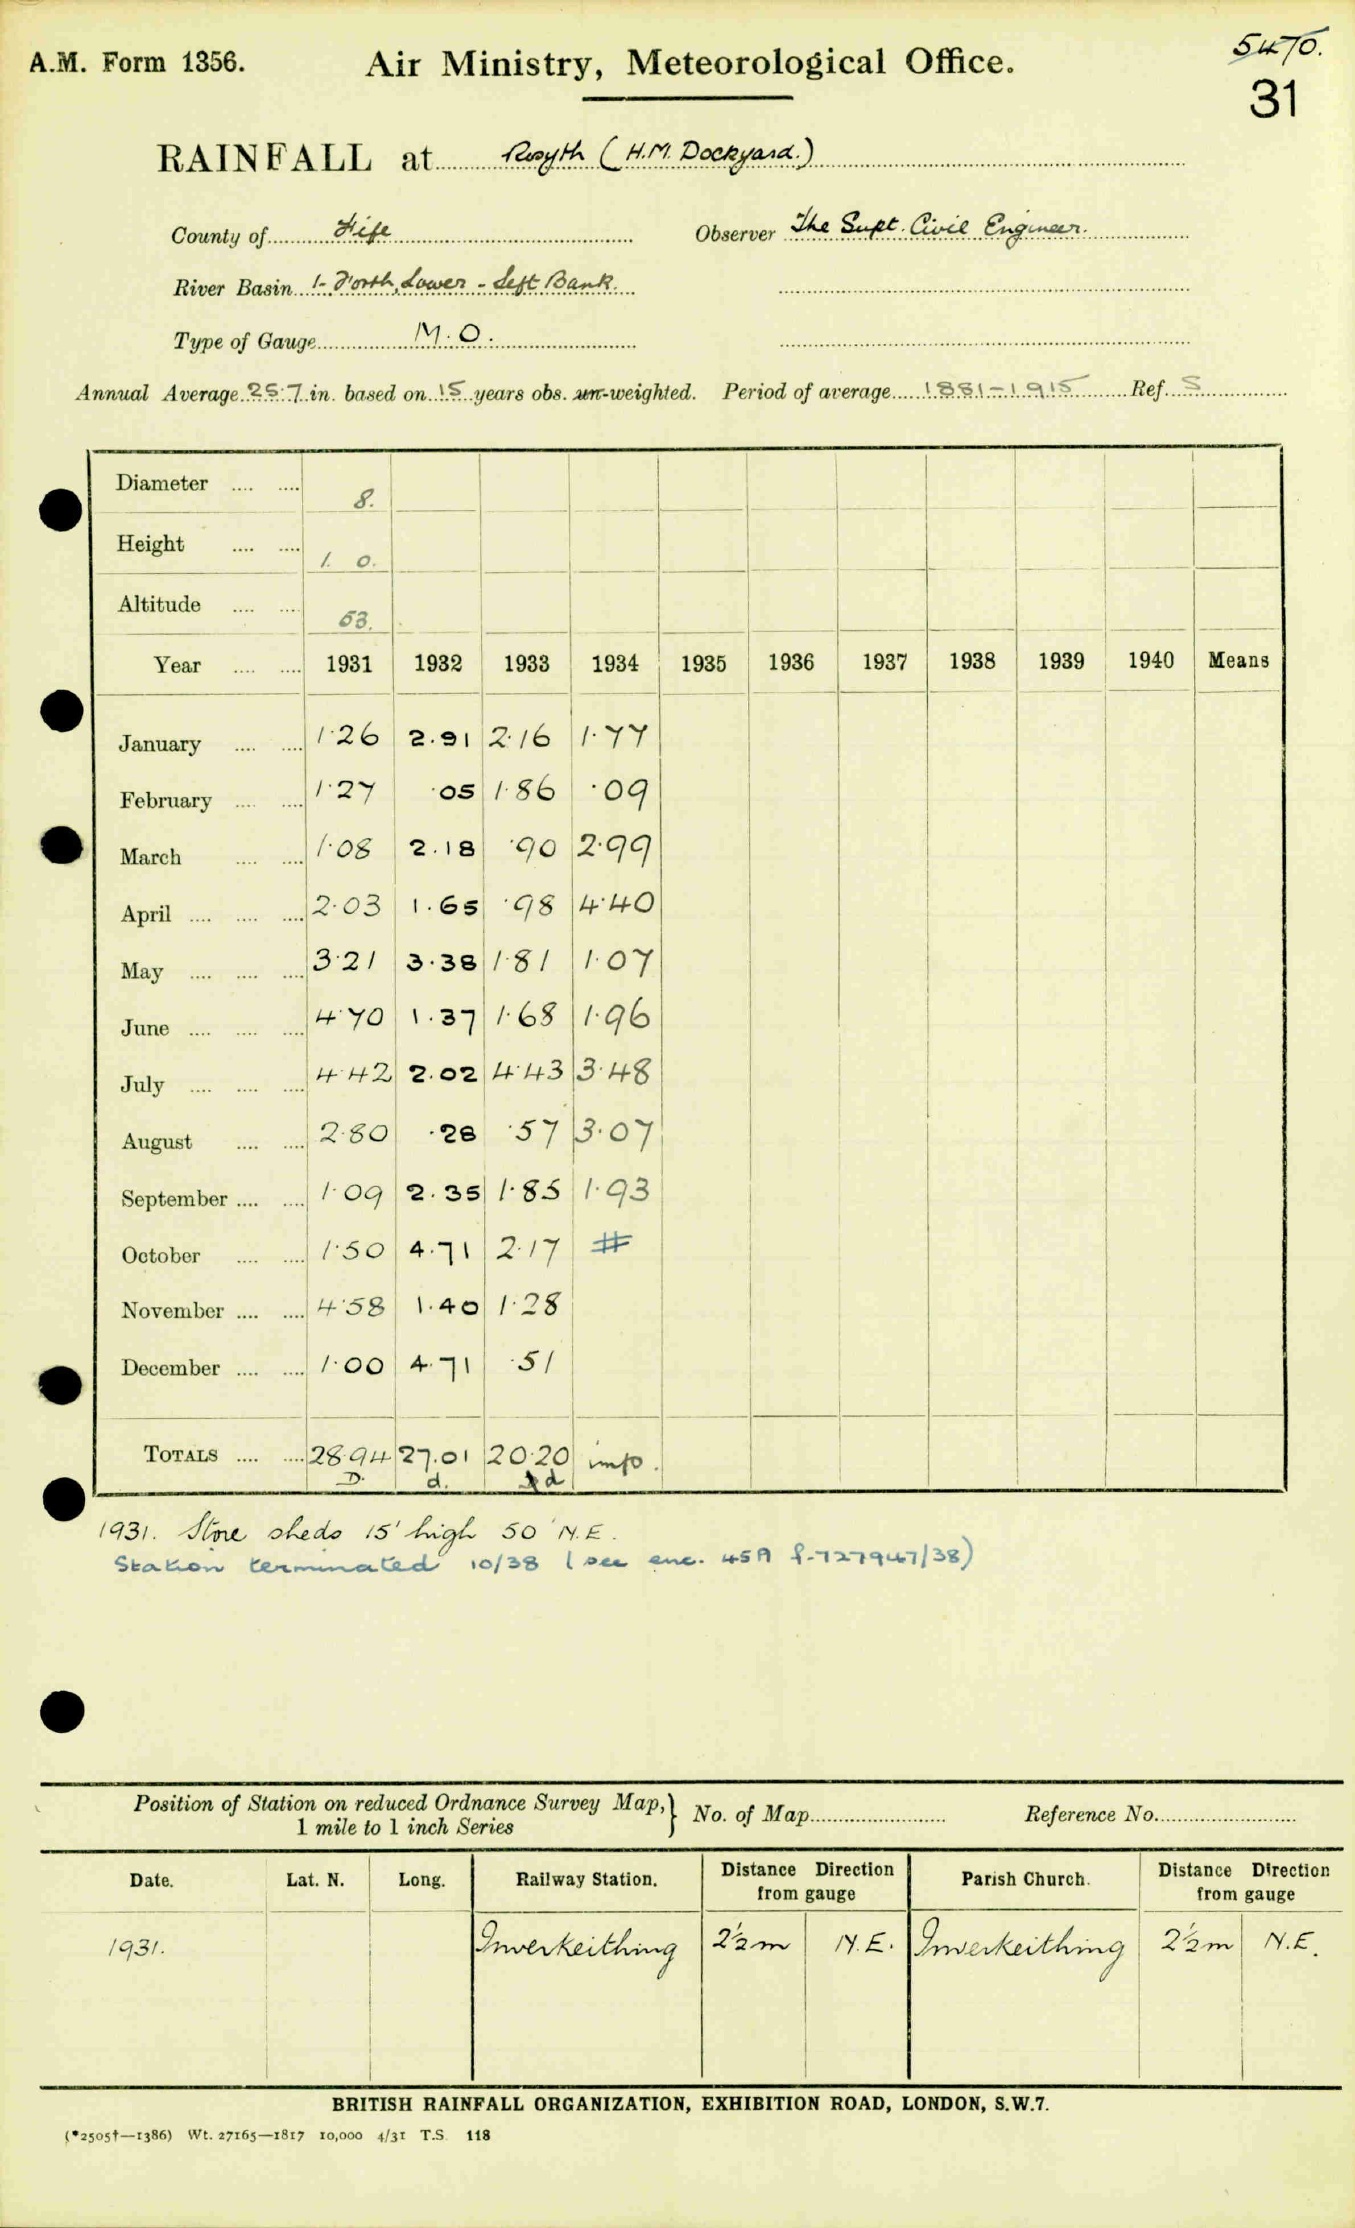 5470.
A.M. Form 1356. Air Ministry, Meteorological Office.
31
RAINFALL at Rosyth (H.M. Dockyard.)
County of Fife Observer The Supt. Civil Engineer.
River Basin 1- Forth, Lower - Left Bank.
Type of Gauge M.O.
Annual Average 25.7 in. based on 15 years obs. un-weighted. Period of average 1881-1915 Ref. S
Diameter .... .... 8.
Height .... .... 1. 0.
Altitude .... .... 53.
Year .... .... 1931 1932 1933 1934 1935 1936 1937 1938 1939 1940 Means
January .... .... 1.26 2.91 2.16 1.77
February .... .... 1.27 .05 1.86 .09
March .... .... 1.08 2.18 .90 2.99
April .... .... .... 2.03 1.65 .98 4.40
May .... .... .... 3.21 3.38 1.81 1.07
June .... .... .... 4.70 1.37 1.68 1.96
July .... .... .... 4.42 2.02 4.43 3.48
August .... .... 2.80 .28 .57 3.07
September .... .... 1.09 2.35 1.85 1.93
October .... .... 1.50 4.71 2.17 #
November .... .... 4.58 1.40 1.28
December .... .... 1.00 4.71 .51
TOTALS .... .... 28.94 27.01 20.20 imp.
D. d. d
1931. Store sheds 15' high 50' N.E.
Station terminated 10/38 (see enc. 45A f-727947/38)
Position of Station on reduced Ordnance Survey Map, } No. of Map Reference No.
1 mile to 1 inch Series
Date. Lat. N. Long. Railway Station. Distance Direction from gauge Parish Church. Distance Direction from gauge
1931. Inverkeithing 2½m N.E. Inverkeithing 2½m N.E.
BRITISH RAINFALL ORGANIZATION, EXHIBITION ROAD, LONDON, S.W.7.
(*2505†—1386) Wt. 27165—1817 10,000 4/31 T.S. 118